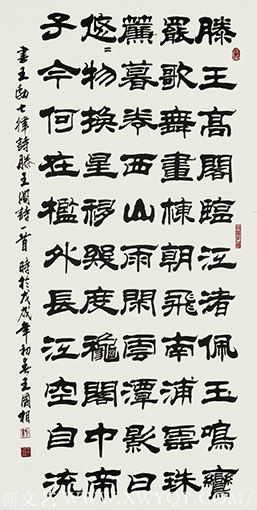 滕王高閣臨江渚佩玉鳴鸞
罷歌舞畫棟朝飛南浦雲珠
簾暮卷西山雨閑雲潭影日
悠〻物換星移幾度龝閣中帝
子今何在檻外長江空自流
書王勃七律詩滕王閣詩一首 時於戊戌年初春王國相